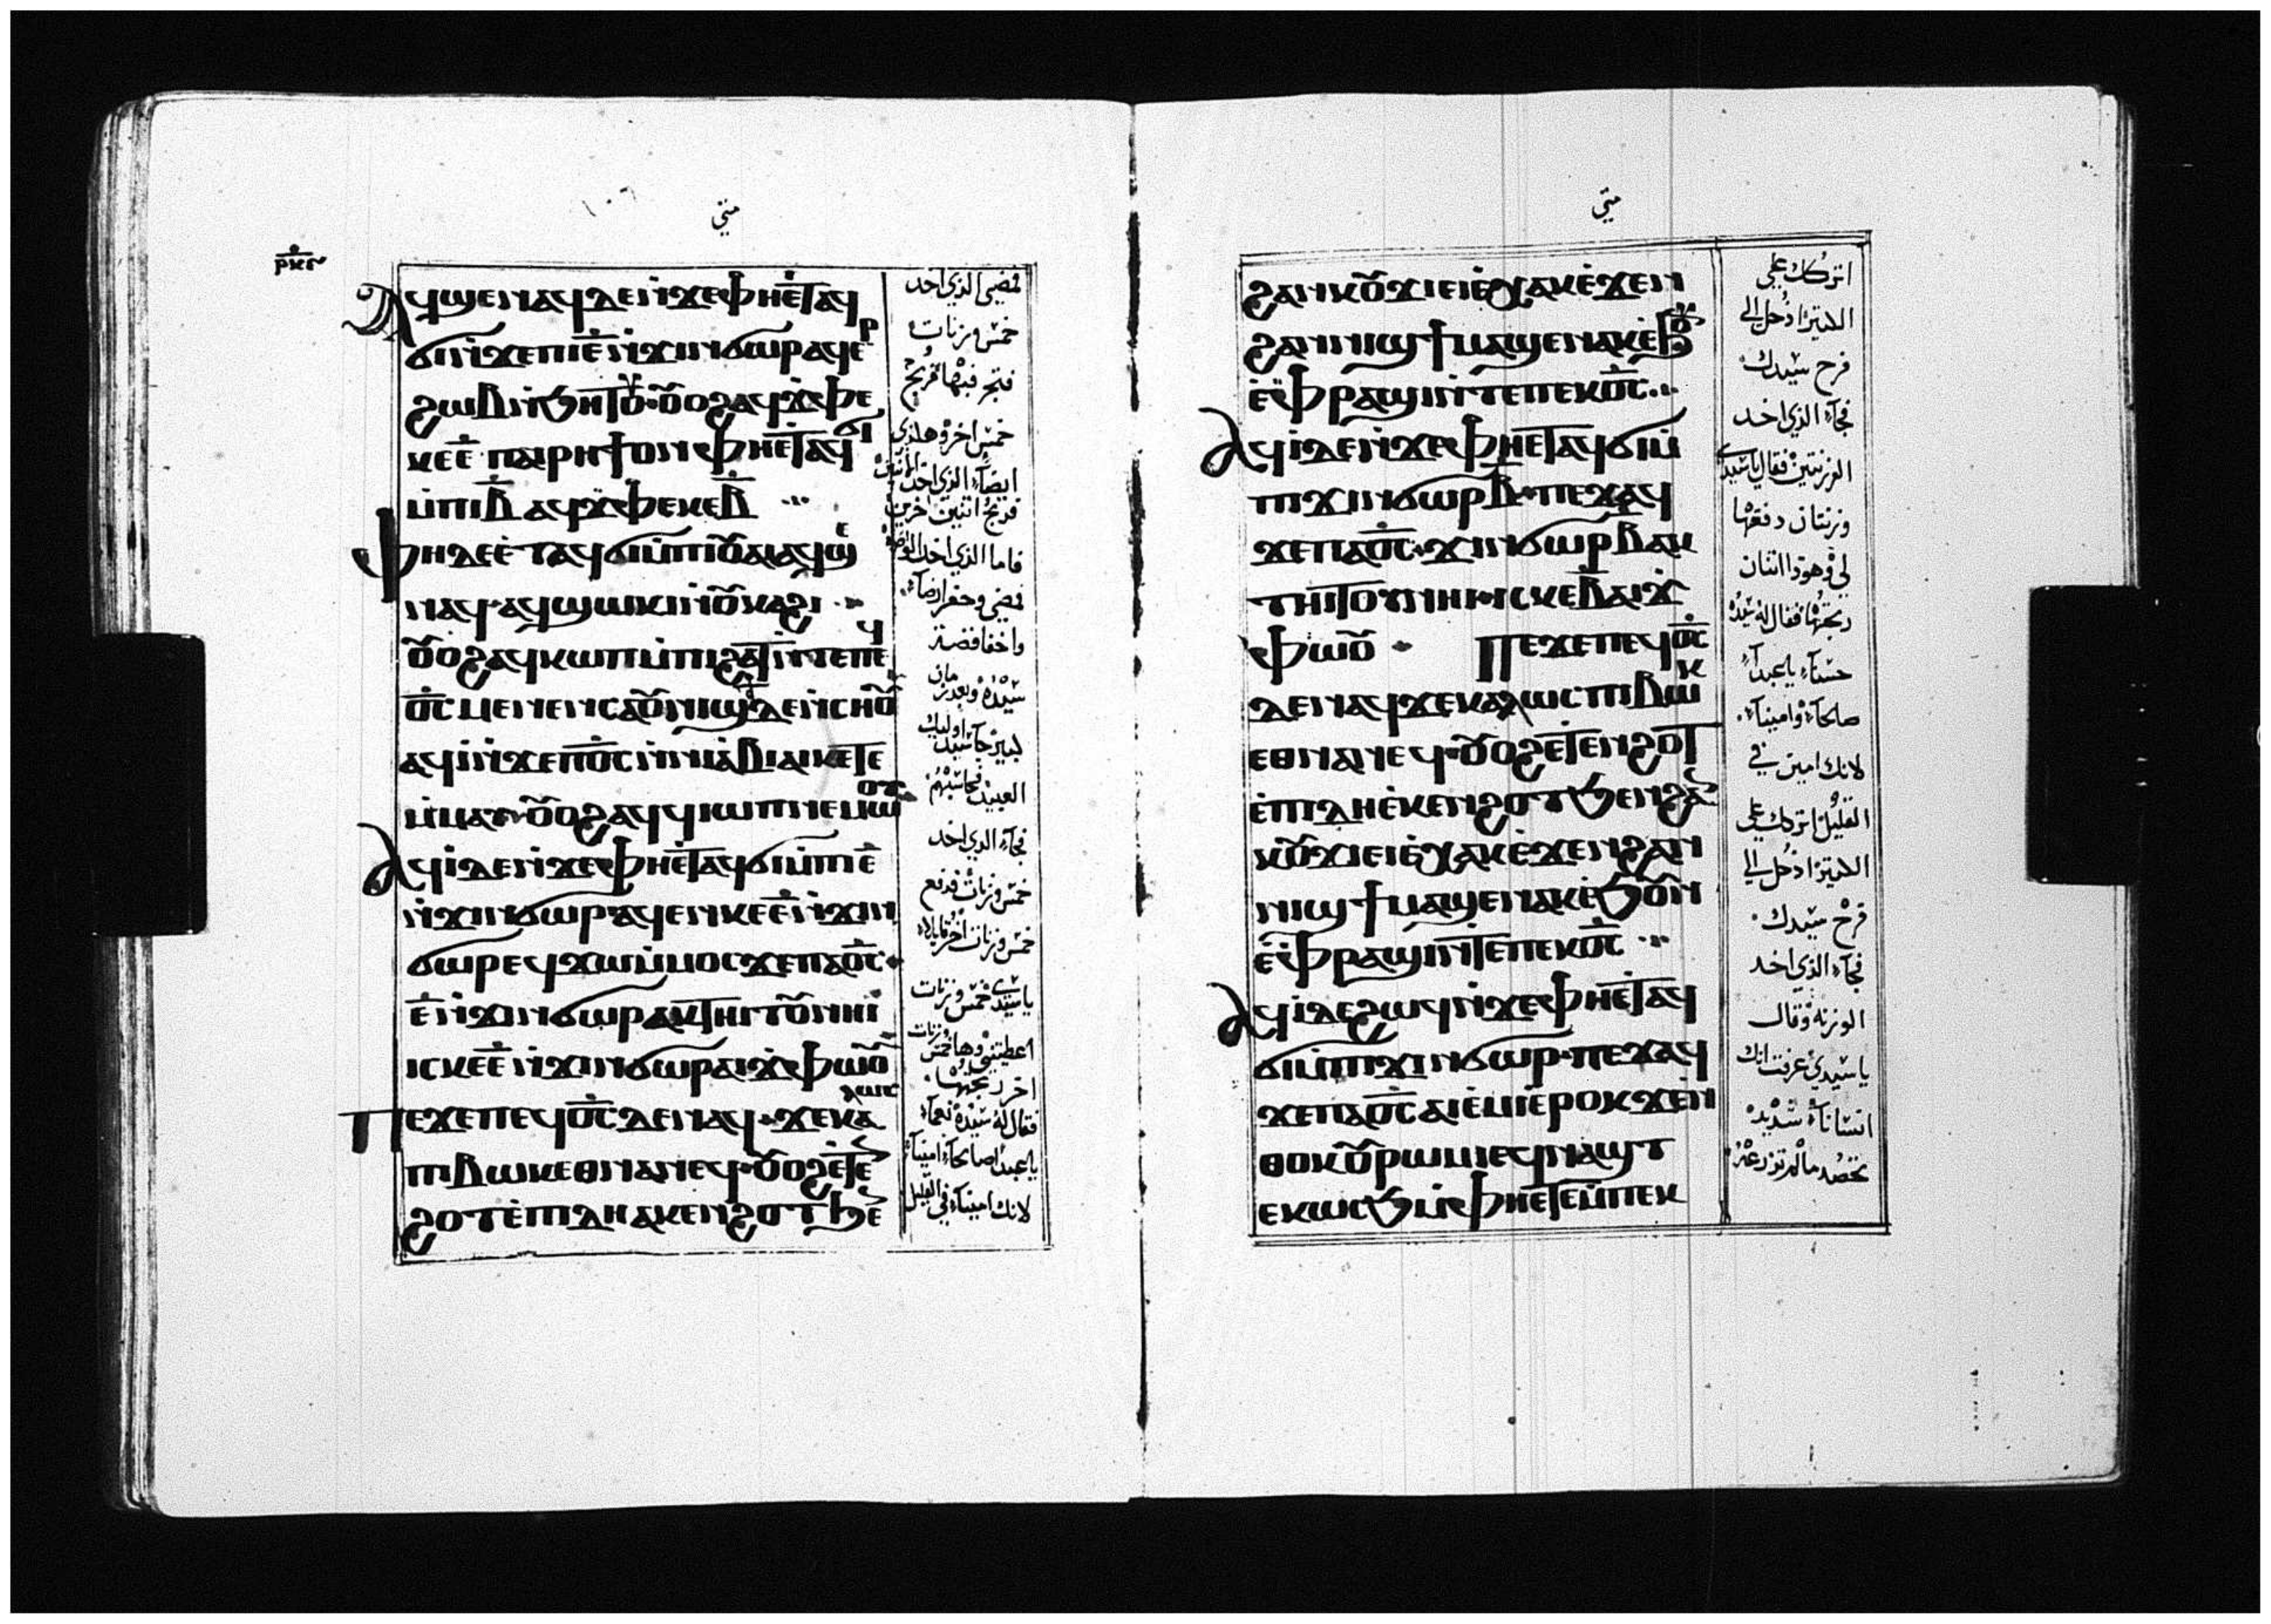 متي
ⲣⲕⲋ
ⲁϥϣⲉⲛⲁϥⲇⲉⲛ̀ϫⲉⲫⲏⲉ̀ⲧⲁϥ
ϭⲓⲛ̀ϫⲉⲡⲓⲉ̅ⲛ̀ϫⲓⲛϭⲱⲣⲁϥⲉⲣ
ϩⲱⲃⲛ̀ϧⲏⲧⲟⲩ·ⲟⲩⲟϩⲁϥϫ̀ⲫⲉ
ⲕⲉⲉ̅·ⲡⲁⲓⲣⲏϯⲟⲛⲫⲏⲉ̀ⲧⲁϥϭⲓ
ⲙ̀ⲡⲓⲃ̅ ⲁϥϫ̀ⲫⲉⲕⲉⲃ̅
ⲫⲏⲇⲉⲉ̀ⲧⲁϥϭⲓⲙ̀ⲡⲓⲟⲩⲁⲓⲁϥϣⲉ
ⲛⲁϥ·ⲁϥϣⲱⲕⲓⲛ̀ⲟⲩⲕⲁϩⲓ
ⲟⲩⲟϩⲁϥⲕⲱⲡⲙ̀ⲡⲓϩⲁⲧⲛ̀ⲧⲉⲡⲉϥ
ⲟ̅ⲥ̅ ⲙⲉⲛⲉⲛⲥⲁⲟⲩⲛⲓϣϯⲇⲉⲛ̀ⲥⲏⲟⲩ
ⲁϥⲓ̀ⲛ̀ϫⲉⲡⲟ̅ⲥ̅ⲛ̀ⲛⲓⲉ̀ⲃⲓⲁⲓⲕⲉⲧⲉ
ⲙ̀ⲙⲁⲩ·ⲟⲩⲟϩⲁϥϥⲓⲱⲡⲛⲉⲙⲱⲟⲩ
ⲁϥⲓ̀ⲇⲉⲛ̀ϫⲉⲫⲏⲉ̀ⲧⲁϥϭⲓⲙ̀ⲡⲓⲉ̅
ⲛ̀ϫⲓⲛϭⲱⲣ·ⲁϥⲉⲛⲕⲉⲉ̅ⲛ̀ϫⲓⲛ
ϭⲱⲣⲉϥϫⲱⲙ̀ⲙⲟⲥϫⲉⲡⲁⲟ̅ⲥ̅·
ⲉ̅ⲛ̀ϫⲓⲛϭⲱⲣⲁⲕⲧⲏⲓⲧⲟⲩⲛⲏⲓ
ⲓⲥⲕⲉⲉ̅ⲛ̀ϫⲓⲛϭⲱⲣⲁⲓϫ̀ⲫⲱⲟⲩ
ⲡⲉϫⲉⲡⲉϥⲟ̅ⲥ̅ⲇⲉⲛⲁϥ·ϫⲉⲕⲁⲗⲱⲥ
ⲡⲓⲃⲱⲕⲉⲑⲛⲁⲛⲉϥ·ⲟⲩⲟϩⲉ̀ⲧⲉⲛ
ϩⲟⲧⲉ̀ⲡⲓⲇⲏⲁⲕⲉⲛϩⲟⲧϧⲉⲛ
فمضي الذي اخد
خمس وزنات
فتجر فيها فربح
خمس اخر وهلذي
ايضآ الذي اخد الاثنتين
فربح اثنتين اخرين
فاما الذي اخد الواحدة
فمضي وحفر ارضآ
واخفا فضة
سيده وبعد زمان
كبير جآ سيد اوليك
العبيد فحاسبهم
فجآ الذي اخد
خمس وزنات فدفع
خمس وزنات اخر قايلا
ياسيدي خمس وزنات
اعطيتني وها خمس وزنات
اخر ربحتها
فقال له سيده نعمآ
ياعبدا صالحآ امينآ
لانك امينآ في القليل
متي
ϩⲁⲛⲕⲟⲩϫⲓⲉⲓⲉ̀ⲭⲁⲕⲉ̀ϫⲉⲛ
ϩⲁⲛⲛⲓϣϯⲙⲁϣⲉⲛⲁⲕⲉ̀ϧⲟⲩⲛ
ⲉ̀ⲫⲣⲁϣⲓⲛ̀ⲧⲉⲡⲉⲕⲟ̅ⲥ̅
ⲁϥⲓ̀ⲇⲉⲛ̀ϫⲉⲫⲏⲉ̀ⲧⲁϥϭⲓⲙ̀
ⲡⲓϫⲓⲛϭⲱⲣⲃ̅·ⲡⲉϫⲁϥ
ϫⲉⲡⲁⲟ̅ⲥ̅·ϫⲓⲛϭⲱⲣⲃ̅ⲁⲕ
ⲧⲏⲓⲧⲟⲩⲛⲏⲓ·ⲓⲥⲕⲉⲃ̅ⲁⲓϫ̀
ⲫⲱⲟⲩ · ⲡⲉϫⲉⲡⲉϥⲟ̅ⲥ̅
ⲇⲉⲛⲁϥϫⲉⲕⲁⲗⲱⲥⲡⲓⲃⲱⲕ
ⲉⲑⲛⲁⲛⲉϥ·ⲟⲩⲟϩⲉ̀ⲧⲉⲛϩⲟⲧ
ⲉ̀ⲡⲓⲇⲏⲉ̀ⲕⲉⲛϩⲟⲧϧⲉⲛϩⲁⲛ
ⲕⲟⲩϫⲓⲉⲓⲉ̀ⲭⲁⲕⲉ̀ϫⲉⲛϩⲁⲛ
ⲛⲓϣϯⲙⲁϣⲉⲛⲁⲕⲉ̀ϧⲟⲩⲛ
ⲉ̀ⲫⲣⲁϣⲓⲛ̀ⲧⲉⲡⲉⲕⲟ̅ⲥ̅
ⲁϥⲓ̀ⲇⲉϩⲱϥⲛ̀ϫⲉⲫⲏⲉ̀ⲧⲁϥ
ϭⲓⲙ̀ⲡⲓϫⲓⲛϭⲱⲣ·ⲡⲉϫⲁϥ
ϫⲉⲡⲁⲟ̅ⲥ̅ⲁⲓⲉ̀ⲙⲓⲉ̀ⲣⲟⲕϫⲉⲛ̀
ⲑⲟⲕⲟⲩⲣⲱⲙⲓⲉϥⲛⲁϣⲧ
ⲉⲕⲱⲥϧⲙ̀ⲫⲏⲉ̀ⲧⲉⲙ̀ⲡⲉⲕ
اتركك علي
الكثير ادخل الي
فرح سيدك
فجآ الذي اخد
الوزنتين فقال ياسيدي
وزنتان دفعتها
لي وهوذا اثنتان
ربحتها فقال له سيده
حسنآ ياعبدآ
صالحآ وامينآ
لانك امين في
القليل اتركك علي
الكثير ادخل الي
فرح سيدك
فجآ الذي اخد
الوزنه وقال
ياسيدي عرفت انك
انسانآ شديد
تحصد ما لم تزرعه